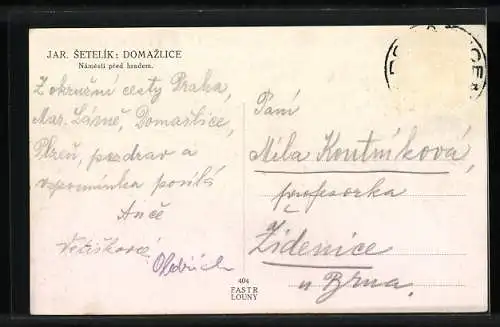 JAR. ŠETELÍK: DOMAŽLICE
Náměstí před hradem.
Z okružní cesty Praha,
Mar. Lázně, Domažlice,
Plzeň, pozdrav a
vzpomínku posílá
Anče
Oldřich
Paní
Míla Koutníková,
profesorka
Židenice
u Brna.
404
FASTR
LOUNY